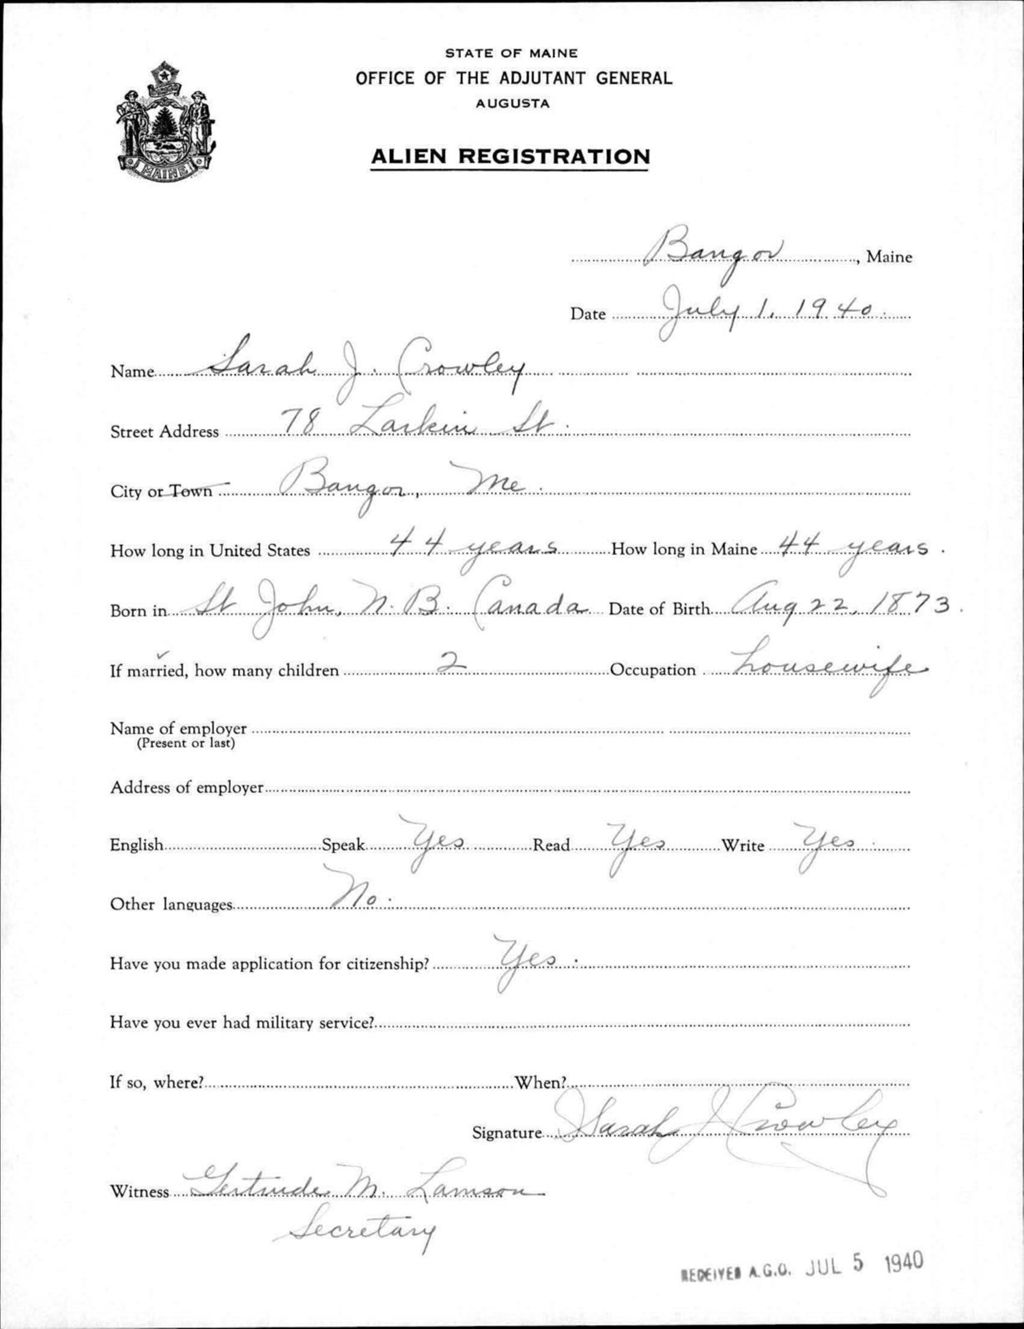 STATE OF MAINE
OFFICE OF THE ADJUTANT GENERAL
AUGUSTA
ALIEN REGISTRATION
MAINE
Bangor, Maine
Date July 1, 1940.
Name Sarah J. Crowley
Street Address 78 Larkin St.
City or Town Bangor, Me.
How long in United States 44 years How long in Maine 44 years.
Born in St John, N.B. Canada Date of Birth Aug 22, 1873.
If married, how many children 2 Occupation housewife
Name of employer
(Present or last)
Address of employer
English Speak Yes Read Yes Write Yes.
Other languages No.
Have you made application for citizenship? Yes.
Have you ever had military service?
If so, where? When?
Signature Sarah J Crowley
Witness Gertrude M. Lamson
Secretary
RECEIVED A.G.O. JUL 5 1940